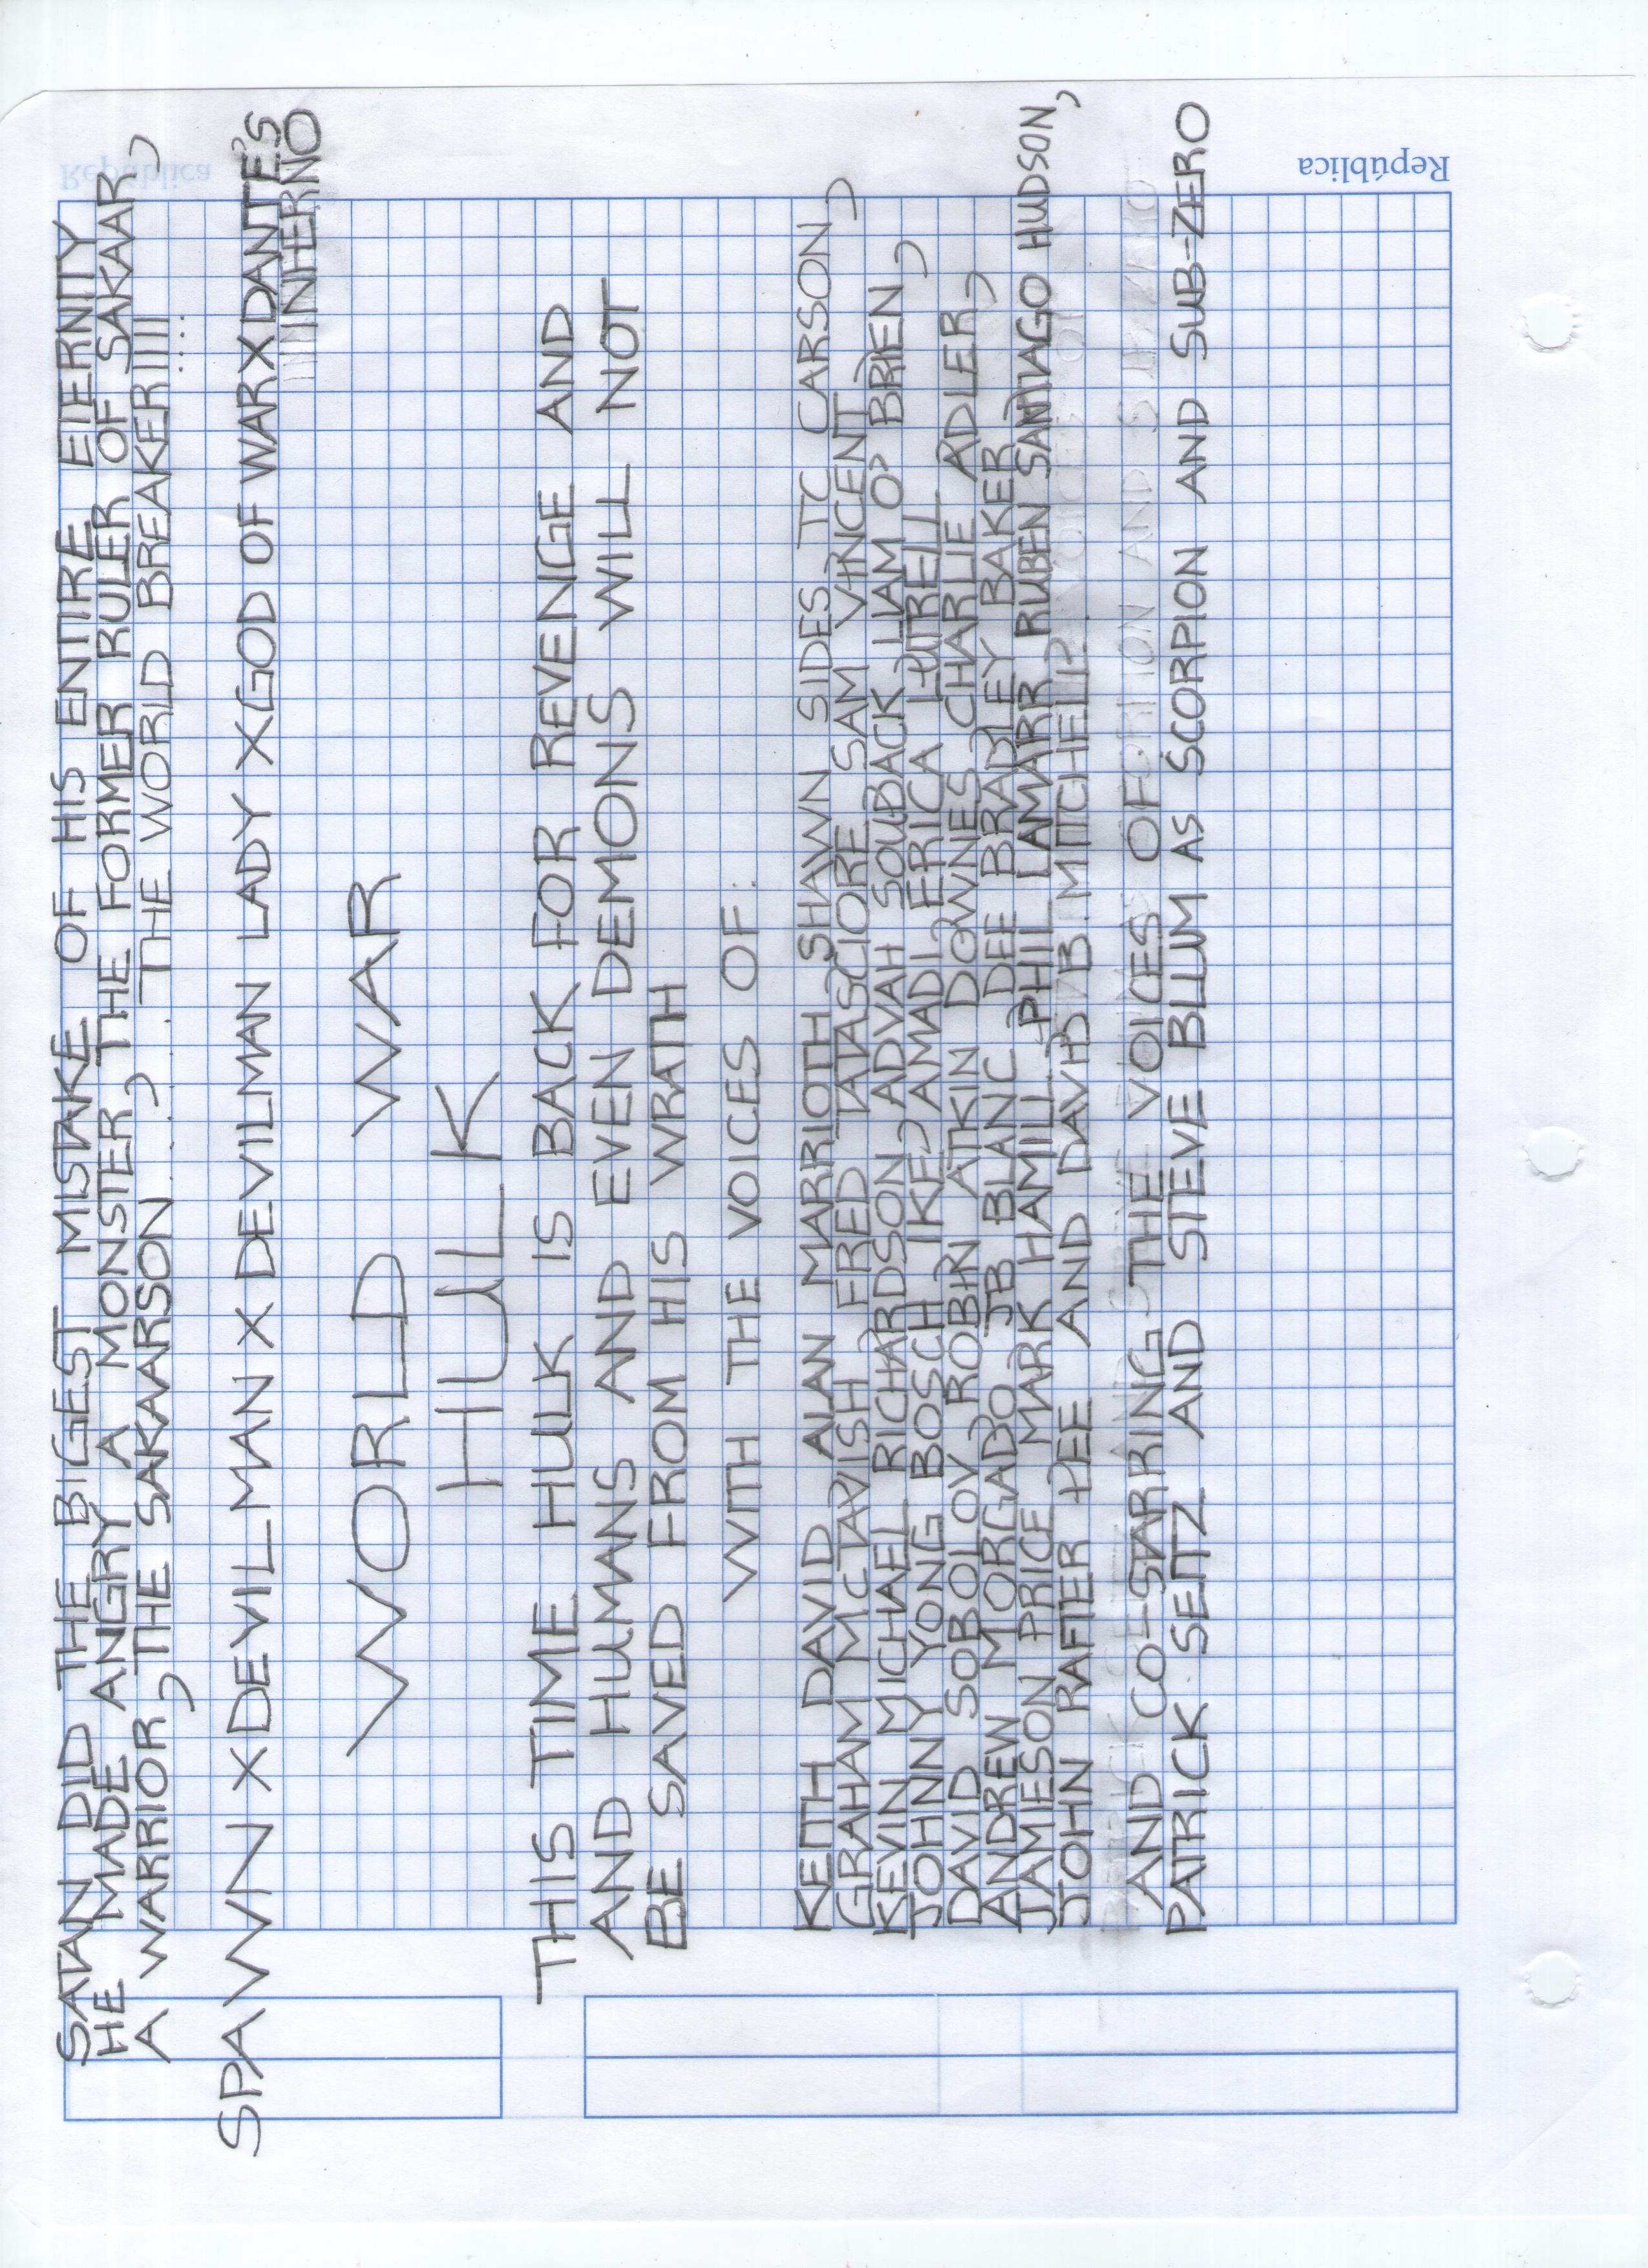 República
República
SATAN DID THE BIGEST MISTAKE OF HIS ENTIRE ETERNITY
HE MADE ANGRY A MONSTER, THE FORMER RULER OF SAKAAR,
A WARRIOR, THE SAKAARSON..... THE WORLD BREAKER!!!!
SPAWN X DEVILMAN X DEVILMAN LADY X GOD OF WAR X DANTE'S
INHERNO
WORLD WAR
HULK
THIS TIME HULK IS BACK FOR REVENGE AND
AND HUMANS AND EVEN DEMONS WILL NOT
BE SAVED FROM HIS WRATH
WITH THE VOICES OF:
KEITH DAVID ALAN MARRIOTH SHAWN SIDES TC CARSON,
GRAHAM MCTAVISH, FRED TATASCIORE SAM VINCENT
KEVIN MICHAEL RICHARDSON, ADVAH SOUBACK, LIAM O'BRIEN,
JOHNNY YONG BOSCH IKE, AMADI, ERICA LUTRELL
DAVID SOBOLOV, ROBIN ATKIN DOWNES, CHARLIE ADLER,
ANDREW MORGADO, JB BLANC, DEE BRADLEY BAKER,
JAMIESON PRICE, MARK HAMILL, PHIL LAMARR RUBEN SANTIAGO HUDSON,
JOHN RAFTER LEE AND DAVID B. MITCHELL?
AND CO-STARRING THE VOICES OF
PATRICK SEITZ AND STEVE BLUM AS SCORPION AND SUB-ZERO